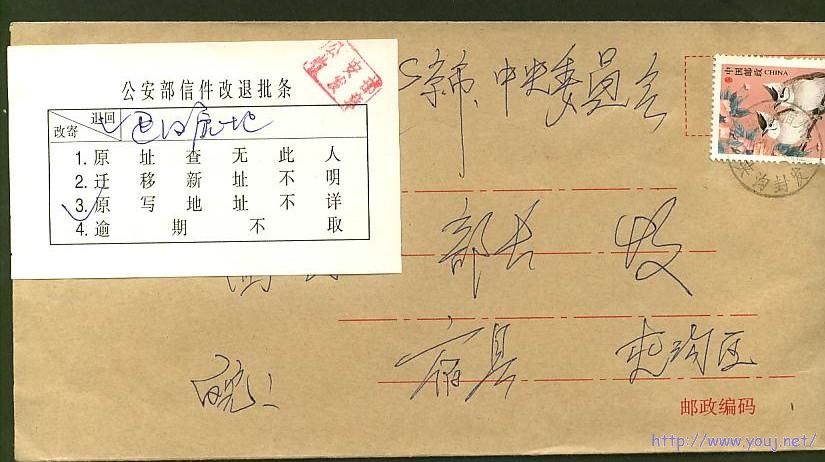 公安部信件改退批条
退回
改寄
退回原地
1. 原址查无此人
2. 迁移新址不明
3. 原写地址不详
4. 逾期不取
京市、中央委员会
中国邮政 CHINA
夹沟封发
部长 收
皖 宿县 夹沟区
邮政编码
http://www.youj.net/